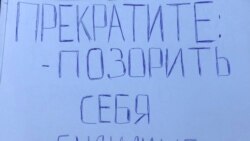 ПРЕКРАТИТЕ:
-ПОЗОРИТЬ
СЕБЯ